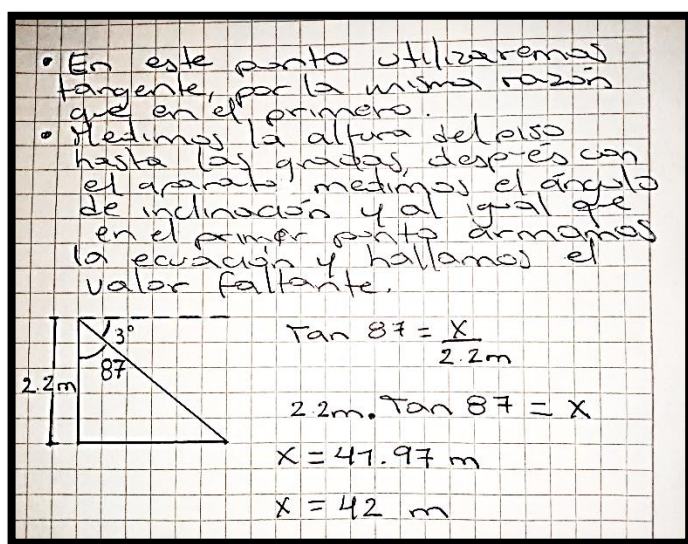 • En este punto utilizaremos
tangente, por la misma razón
que en el primero.
• Medimos la altura del piso
hasta las gradas, después con
el aparato medimos el ángulo
de inclinación y al igual que
en el primer punto armamos
la ecuación y hallamos el
valor faltante.
3°
87
2.2m
Tan 87 = x / 2.2m
2.2m. Tan 87 = x
x = 41.97 m
x = 42 m